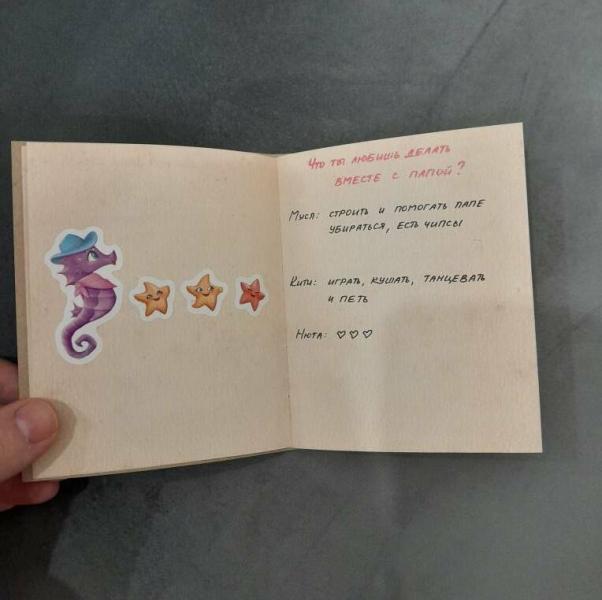 Что ты любишь делать
вместе с папой?
Муся: строить и помогать папе
убираться, есть чипсы
Кити: играть, кушать, танцевать
и петь
Нюта: ♡♡♡